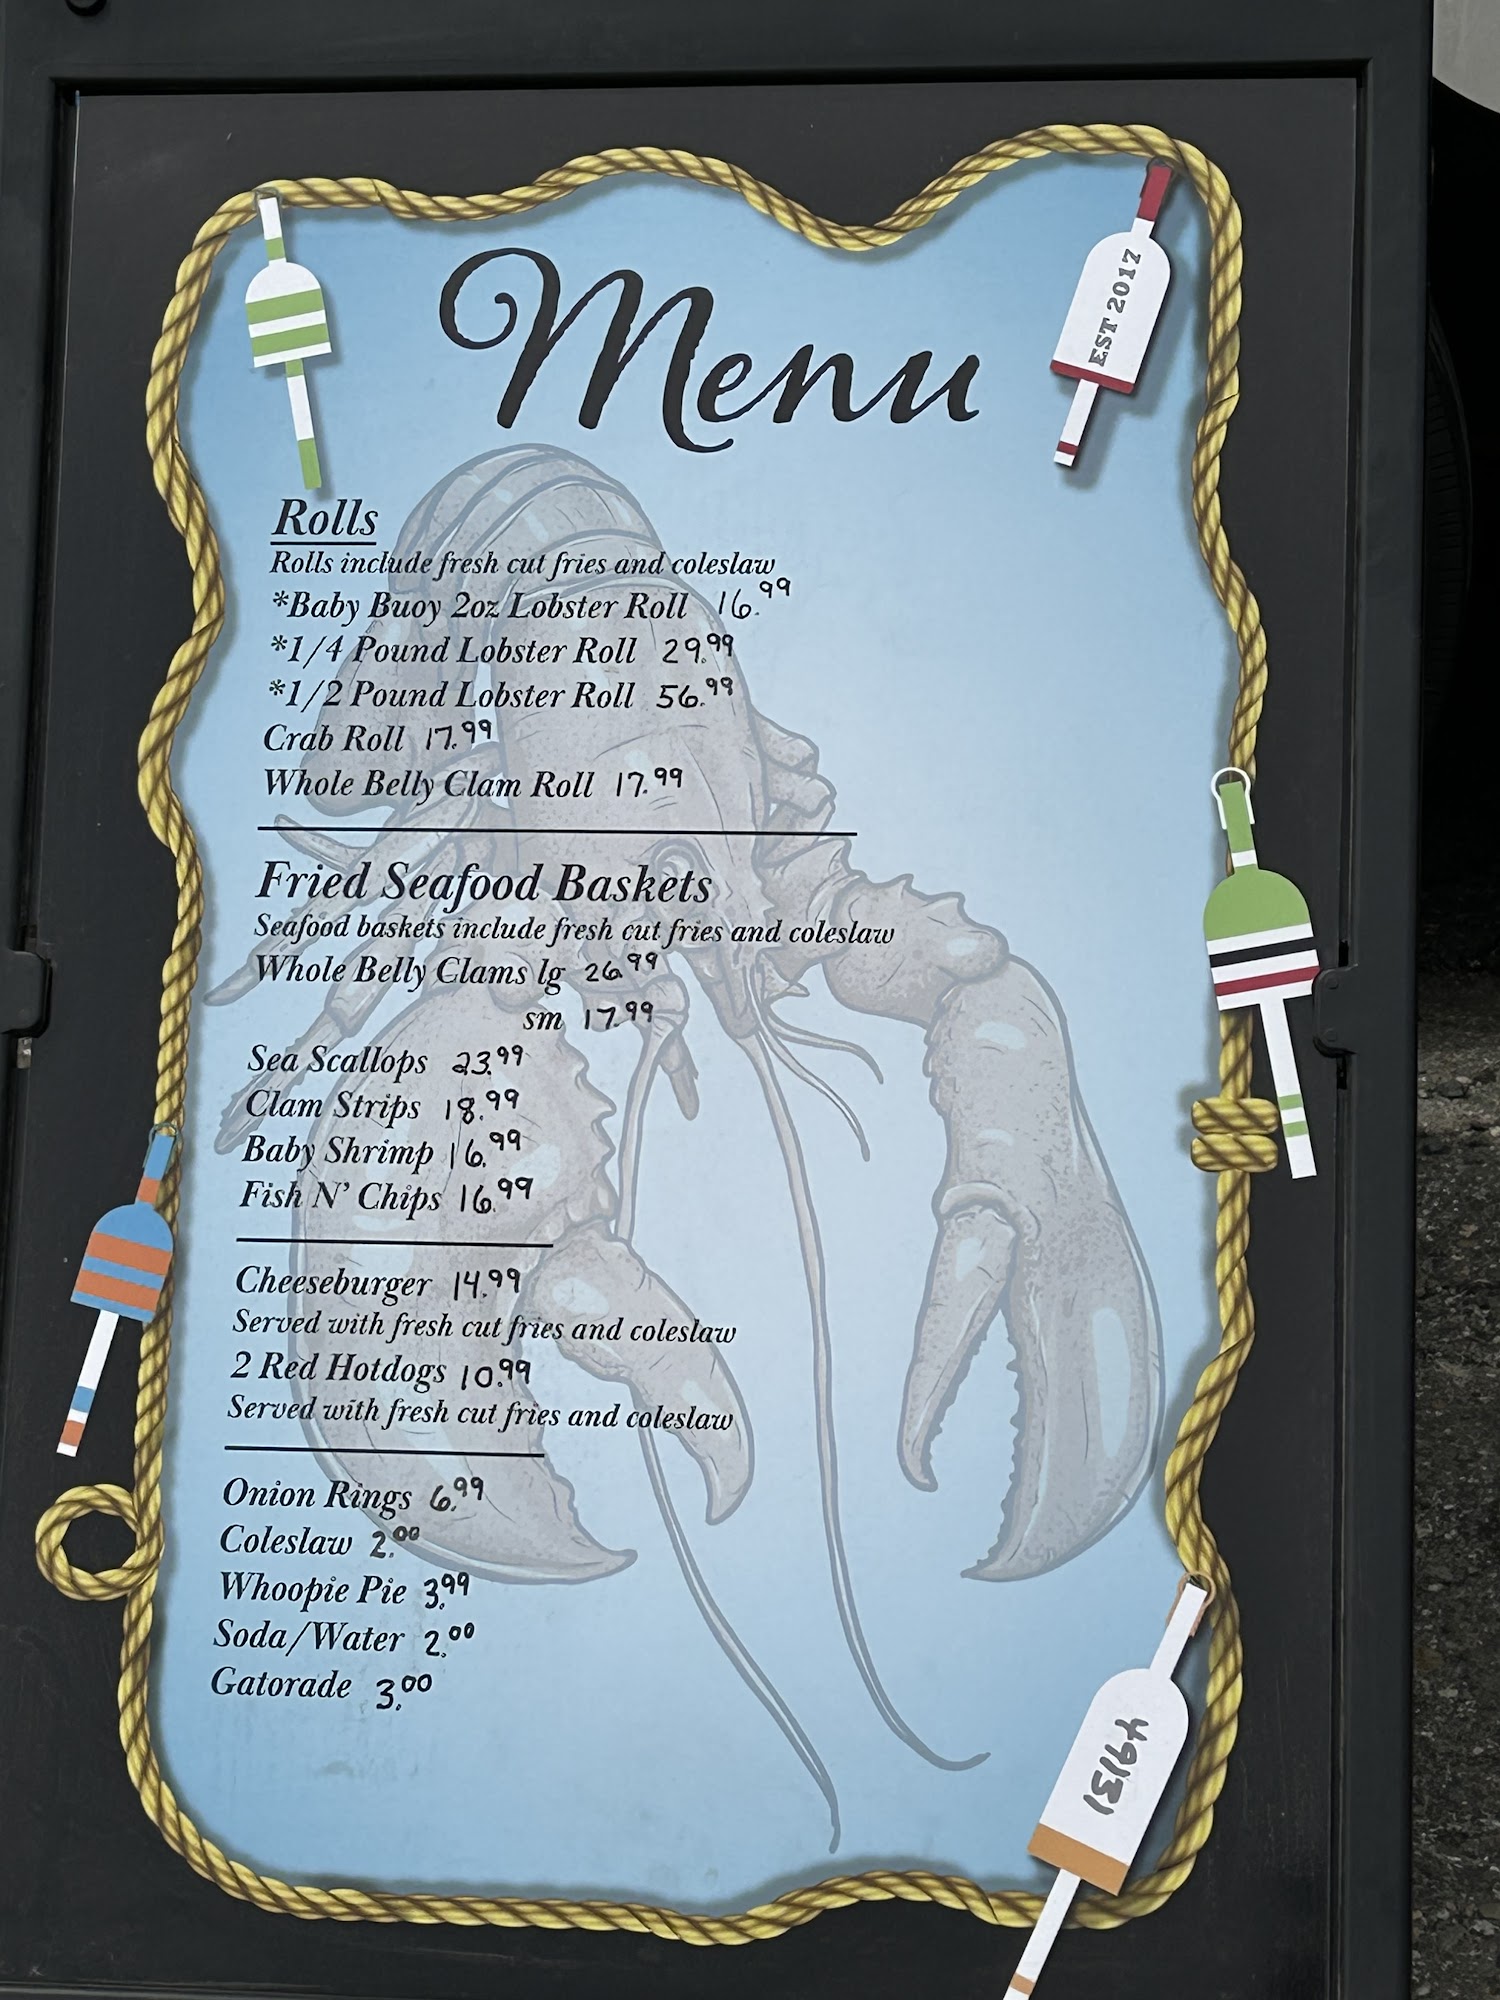 Menu
EST 2017
Rolls
Rolls include fresh cut fries and coleslaw
*Baby Buoy 2oz Lobster Roll 16.99
*1/4 Pound Lobster Roll 29.99
*1/2 Pound Lobster Roll 56.99
Crab Roll 17.99
Whole Belly Clam Roll 17.99
Fried Seafood Baskets
Seafood baskets include fresh cut fries and coleslaw
Whole Belly Clams lg 26.99
sm 17.99
Sea Scallops 23.99
Clam Strips 18.99
Baby Shrimp 16.99
Fish N' Chips 16.99
Cheeseburger 14.99
Served with fresh cut fries and coleslaw
2 Red Hotdogs 10.99
Served with fresh cut fries and coleslaw
Onion Rings 6.99
Coleslaw 2.00
Whoopie Pie 3.99
Soda/Water 2.00
Gatorade 3.00
49131